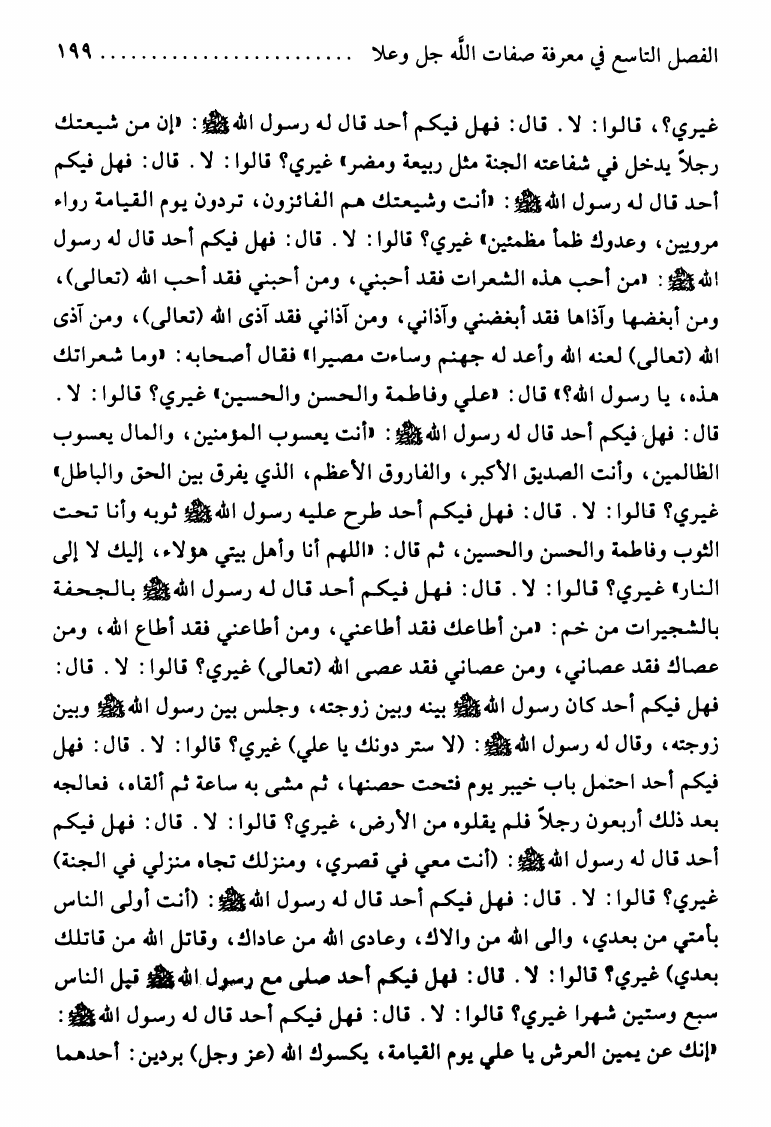 الفصل التاسع في معرفة صفات اللَّه جل وعلا ......................... ١٩٩
غيري؟، قالوا: لا. قال: فهل فيكم أحد قال له رسول الله ﷺ: «إن من شيعتك
رجلاً يدخل في شفاعته الجنة مثل ربيعة ومضر» غيري؟ قالوا: لا. قال: فهل فيكم
أحد قال له رسول الله ﷺ: «أنت وشيعتك هم الفائزون، تردون يوم القيامة رواء
مرويين، وعدوك ظمأ مظمئين» غيري؟ قالوا: لا. قال: فهل فيكم أحد قال له رسول
الله ﷺ: «من أحب هذه الشعرات فقد أحبني، ومن أحبني فقد أحب الله (تعالى)،
ومن أبغضها وآذاها فقد أبغضني وآذاني، ومن آذاني فقد آذى الله (تعالى)، ومن آذى
الله (تعالى) لعنه الله وأعد له جهنم وساءت مصيرا» فقال أصحابه: «وما شعراتك
هذه، يا رسول الله؟» قال: «علي وفاطمة والحسن والحسين» غيري؟ قالوا: لا.
قال: فهل فيكم أحد قال له رسول الله ﷺ: «أنت يعسوب المؤمنين، والمال يعسوب
الظالمين، وأنت الصديق الأكبر، والفاروق الأعظم، الذي يفرق بين الحق والباطل»
غيري؟ قالوا: لا. قال: فهل فيكم أحد طرح عليه رسول الله ﷺ ثوبه وأنا تحت
الثوب وفاطمة والحسن والحسين، ثم قال: «اللهم أنا وأهل بيتي هؤلاء، إليك لا إلى
النار» غيري؟ قالوا: لا. قال: فهل فيكم أحد قال له رسول الله ﷺ بالجحفة
بالشجيرات من خم: «من أطاعك فقد أطاعني، ومن أطاعني فقد أطاع الله، ومن
عصاك فقد عصاني، ومن عصاني فقد عصى الله (تعالى) غيري؟ قالوا: لا. قال:
فهل فيكم أحد كان رسول الله ﷺ بينه وبين زوجته، وجلس بين رسول الله ﷺ وبين
زوجته، وقال له رسول الله ﷺ: (لا ستر دونك يا علي) غيري؟ قالوا: لا. قال: فهل
فيكم أحد احتمل باب خيبر يوم فتحت حصنها، ثم مشى به ساعة ثم ألقاه، فعالجه
بعد ذلك أربعون رجلاً فلم يقلوه من الأرض، غيري؟ قالوا: لا. قال: فهل فيكم
أحد قال له رسول الله ﷺ: (أنت معي في قصري، ومنزلك تجاه منزلي في الجنة)
غيري؟ قالوا: لا. قال: فهل فيكم أحد قال له رسول الله ﷺ: (أنت أولى الناس
بأمتي من بعدي، والى الله من والاك، وعادى الله من عاداك، وقاتل الله من قاتلك
بعدي) غيري؟ قالوا: لا. قال: فهل فيكم أحد صلى مع رسول الله ﷺ قبل الناس
سبع وستين شهرا غيري؟ قالوا: لا. قال: فهل فيكم أحد قال له رسول الله ﷺ:
«إنك عن يمين العرش يا علي يوم القيامة، يكسوك الله (عز وجل) بردين: أحدهما